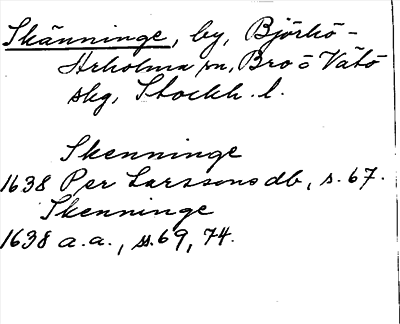 Skänninge, by, Björkö-
Arholma sn, Bro o Vätö
skg, Stockh. l.
Skenninge
1638 Per Larssons db, s. 67.
Skenninge
1638 a.a., ss. 69, 74.